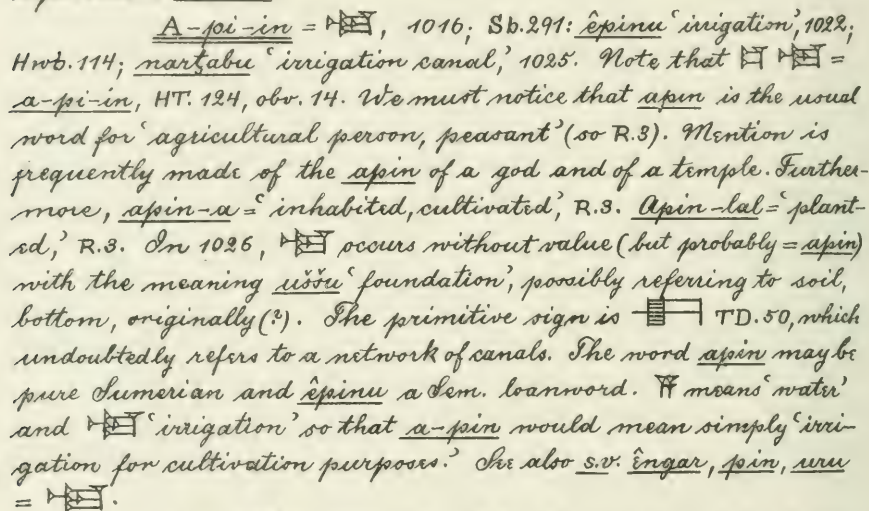 A-pi-in = 𒀳, 1016; Sb. 291: êpinu ‘irrigation’, 1022;
Hwb. 114; narṭabu ‘irrigation canal,’ 1025. Note that 𒄑 𒀳 =
a-pi-in, HT. 124, obv. 14. We must notice that apin is the usual
word for ‘agricultural person, peasant’ (so R.3). Mention is
frequently made of the apin of a god and of a temple. Further-
more, apin-a = ‘inhabited, cultivated,’ R.3. Apin-lal = ‘plant-
ed,’ R.3. In 1026, 𒀳 occurs without value (but probably = apin)
with the meaning uššu ‘foundation’, possibly referring to soil,
bottom, originally (?). The primitive sign is TD. 50, which
undoubtedly refers to a network of canals. The word apin may be
pure Sumerian and êpinu a Sem. loanword. 𒀀 means ‘water’
and 𒀳 ‘irrigation’ so that a-pin would mean simply ‘irri-
gation for cultivation purposes.’ See also s.v. êngar, pin, uru
= 𒀳.